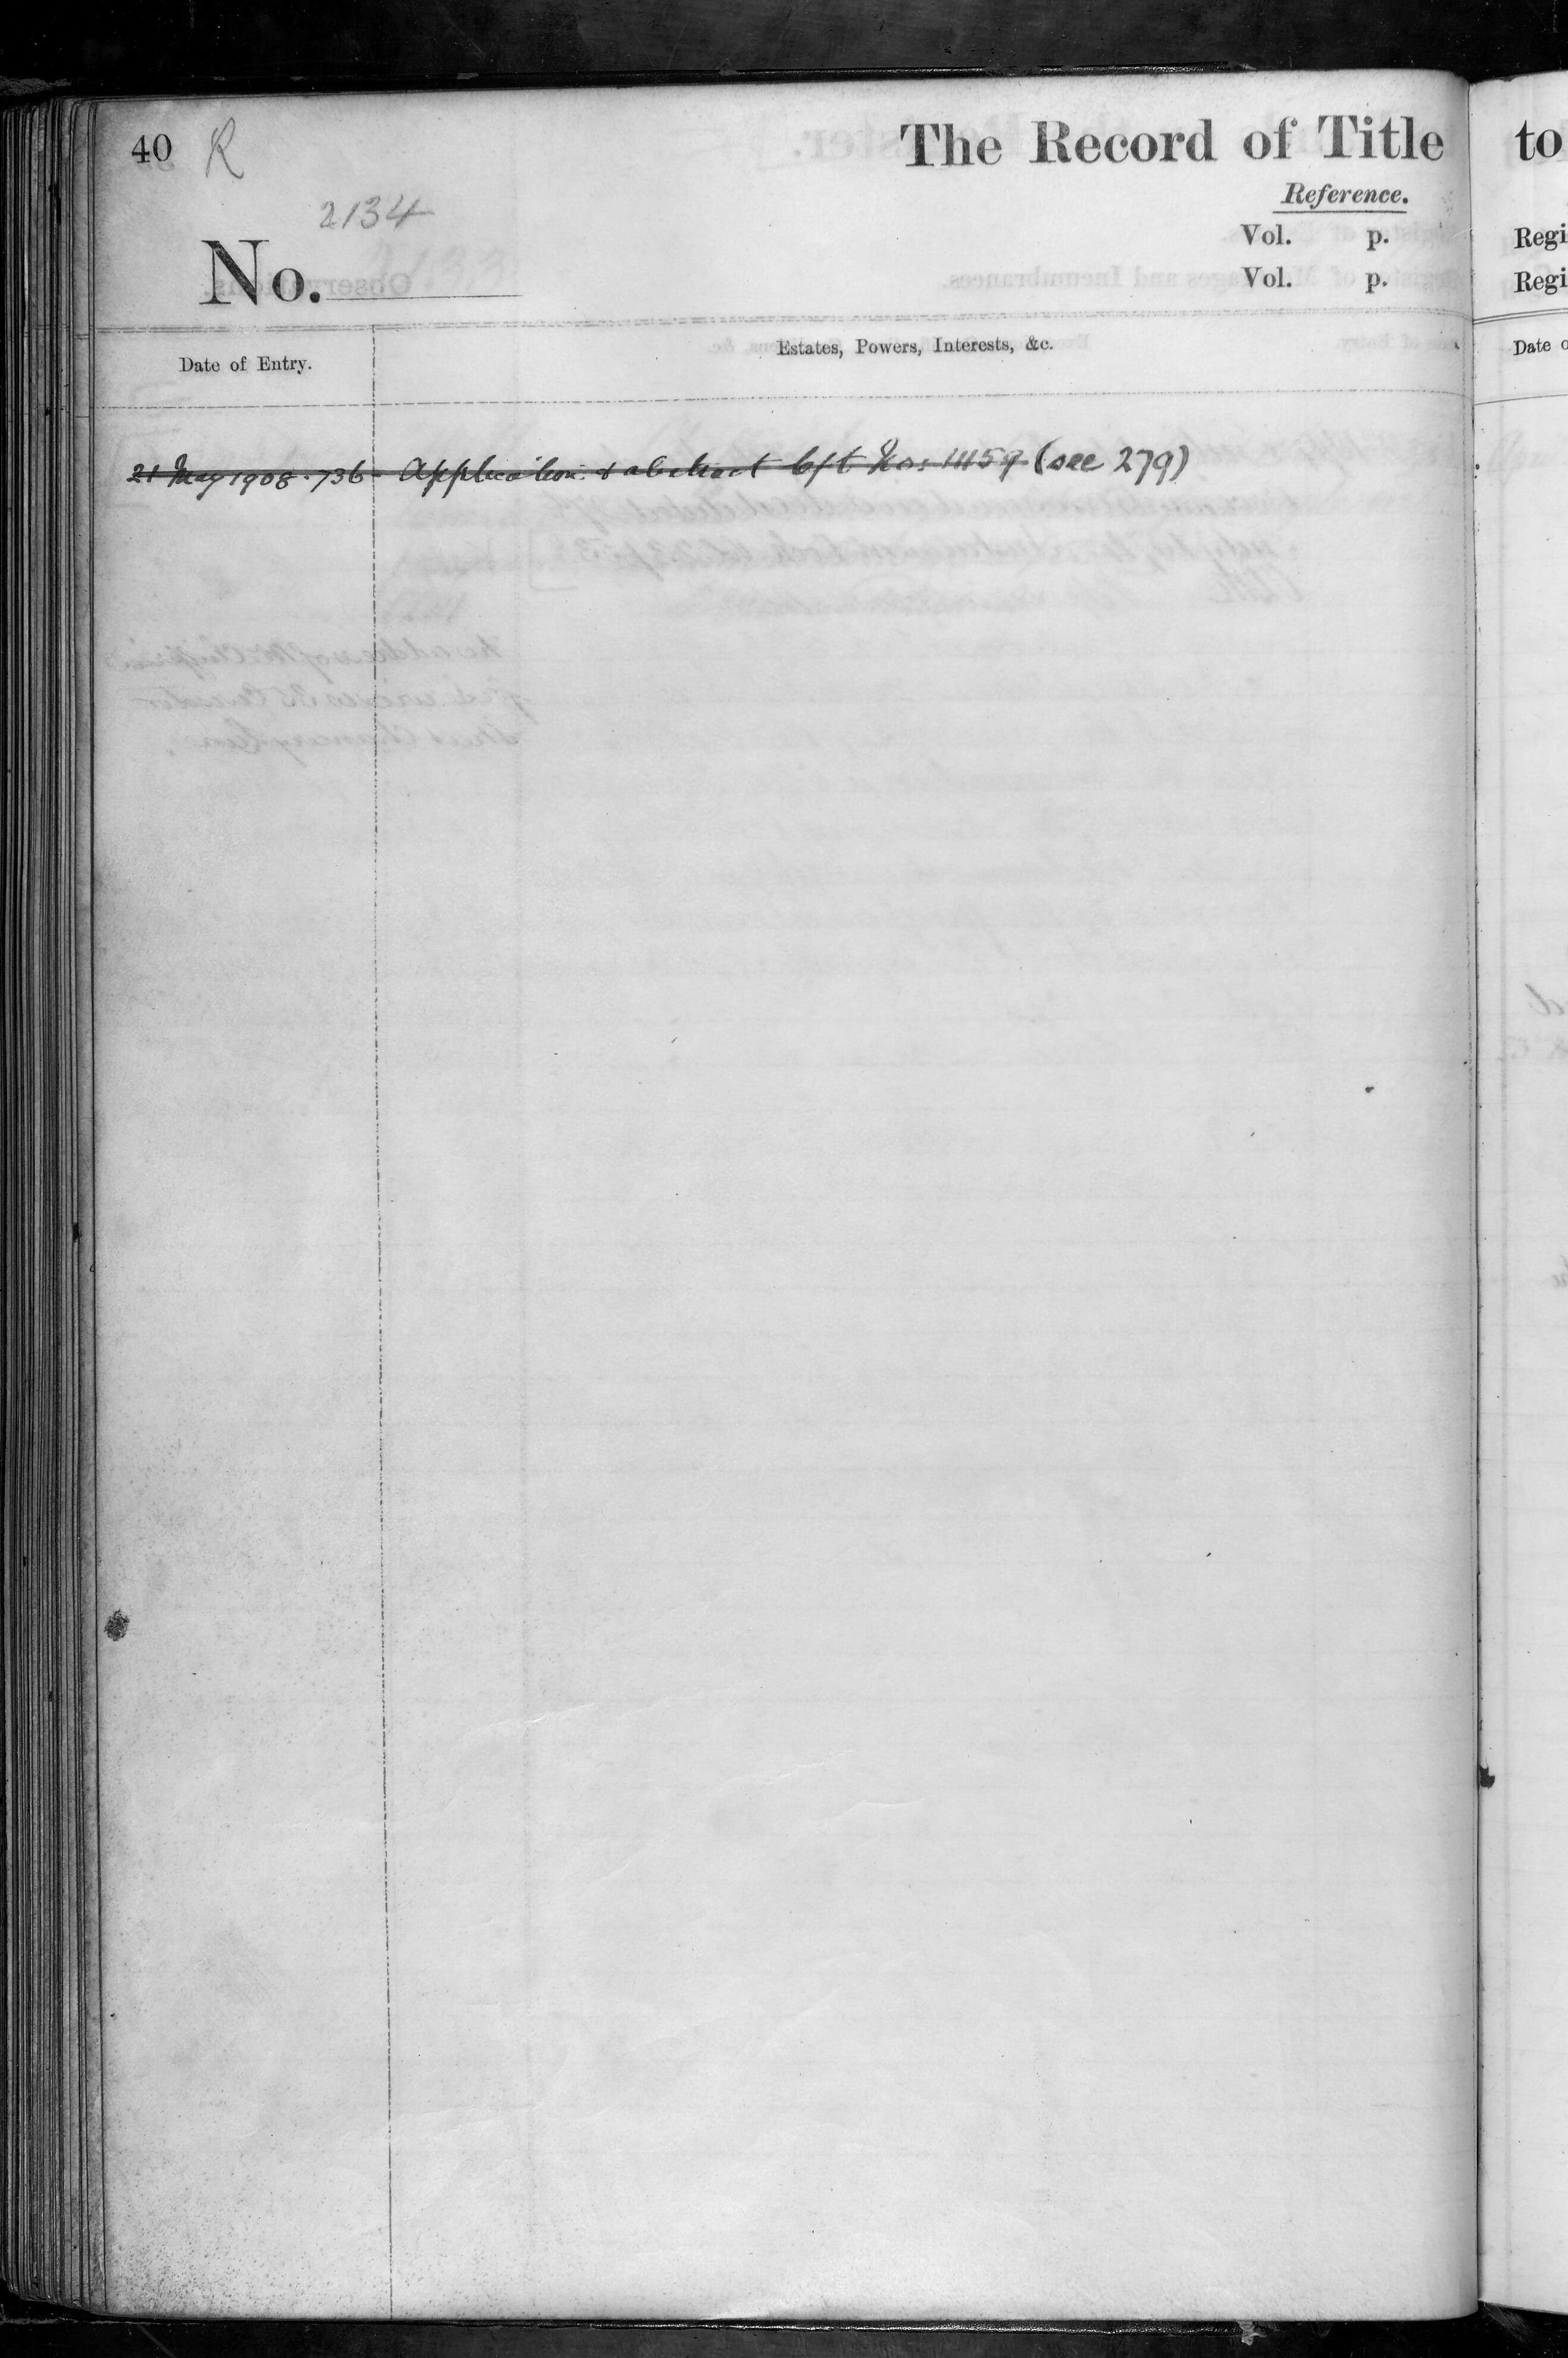 40 R
The Record of Title
Reference.
2134
Vol. p.
No.
Vol. p.
Date of Entry.
Estates, Powers, Interests, &c.
21 May 1908. 736 - Application & abstract (see 279)
to
Regi
Regi
Date o